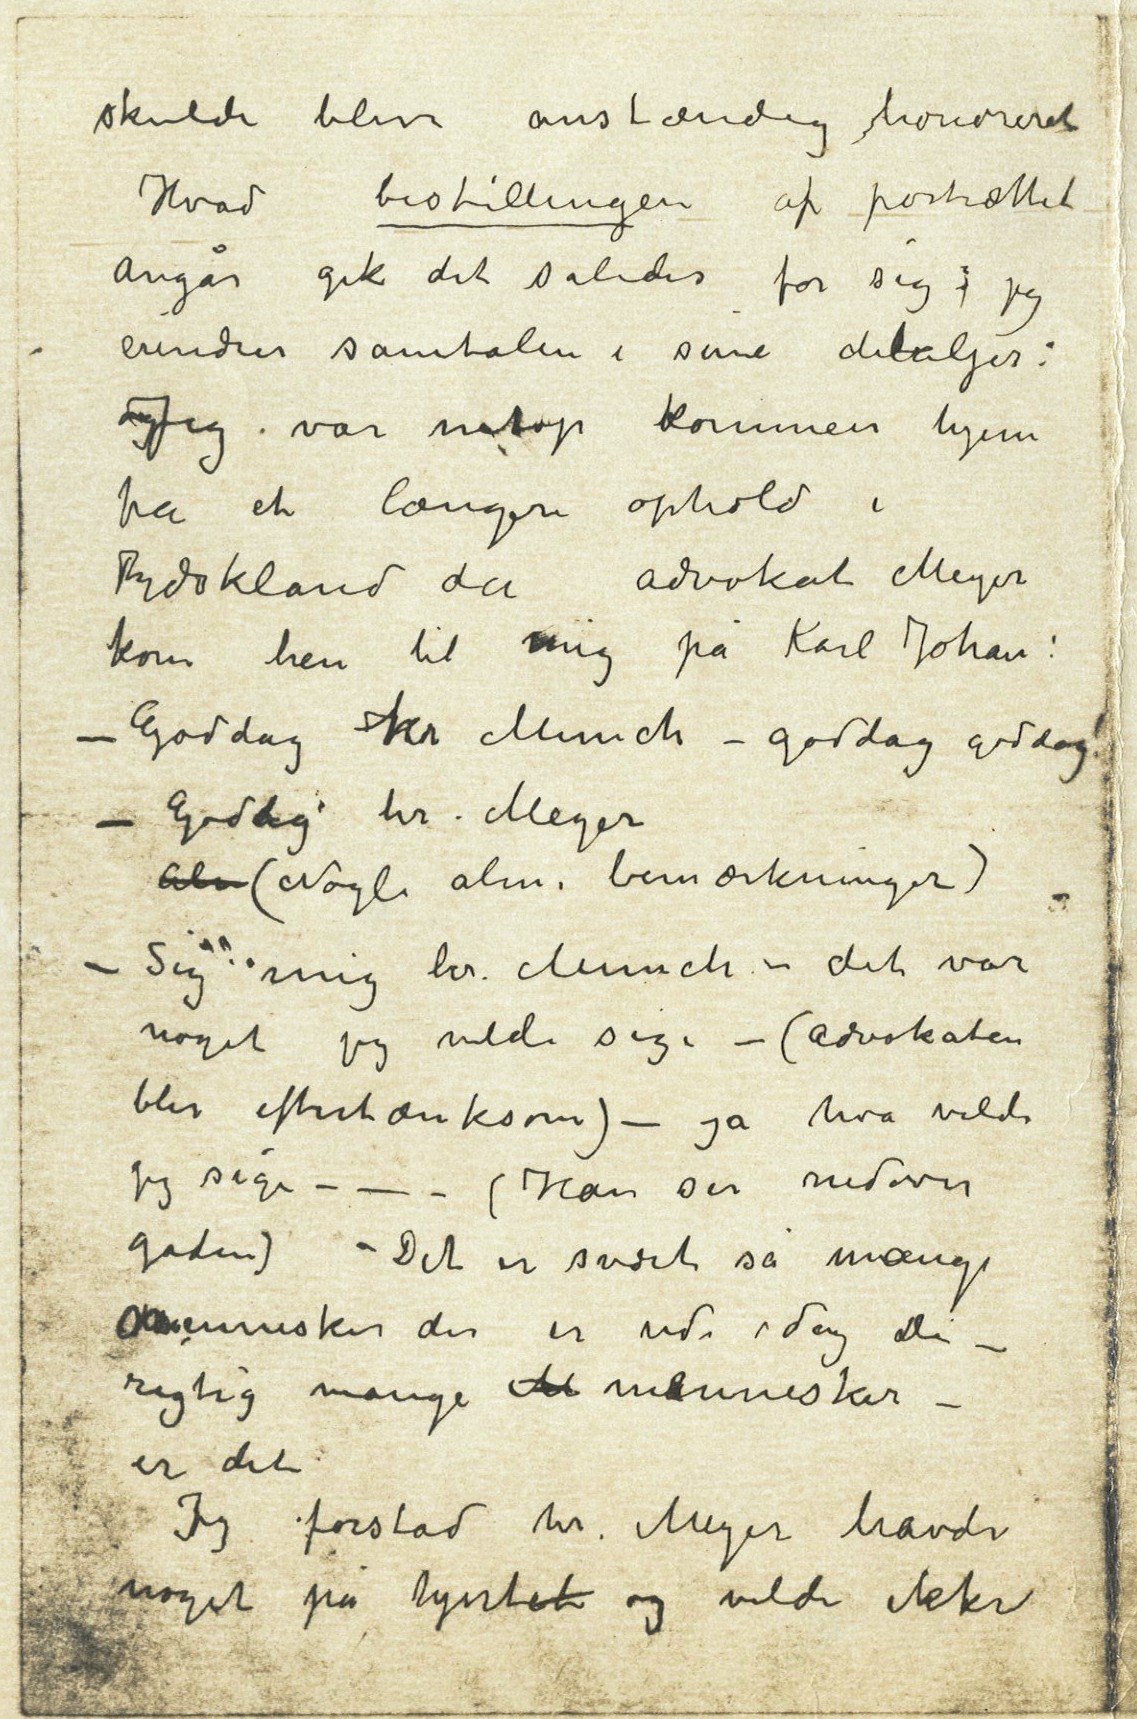 skulde blive anstændig honoreret
Hvad bestillingen af portrættet
angår gik det saledes for sig; jeg
erindrer samtalen i sine detaljer:
Jeg var netop kommen hjem
fra et længere ophold i
Tydskland da advokat Meyer
kom hen til mig på Karl Johan:
– Goddag hr Munch – goddag goddag!
– Goddag hr. Meyer
alm (Nogle alm. bemærkninger)
– Sig mig hr. Munch – det var
noget jeg vilde sige – (advokaten
blir eftertænksom) – ja hva vilde
jeg sige – – – (Han ser nedover
gaden) – Det er svært så mange
mennesker der er ude idag –
regtig mange M mennesker –
er det
Jeg forstod hr. Meyer havde
noget på hjertet og vilde ikke